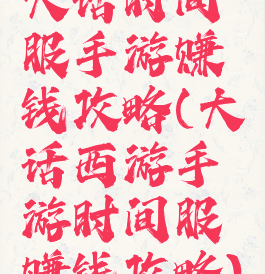 大话时间
服手游赚
钱攻略(大
话西游手
游时间服
赚钱攻略)